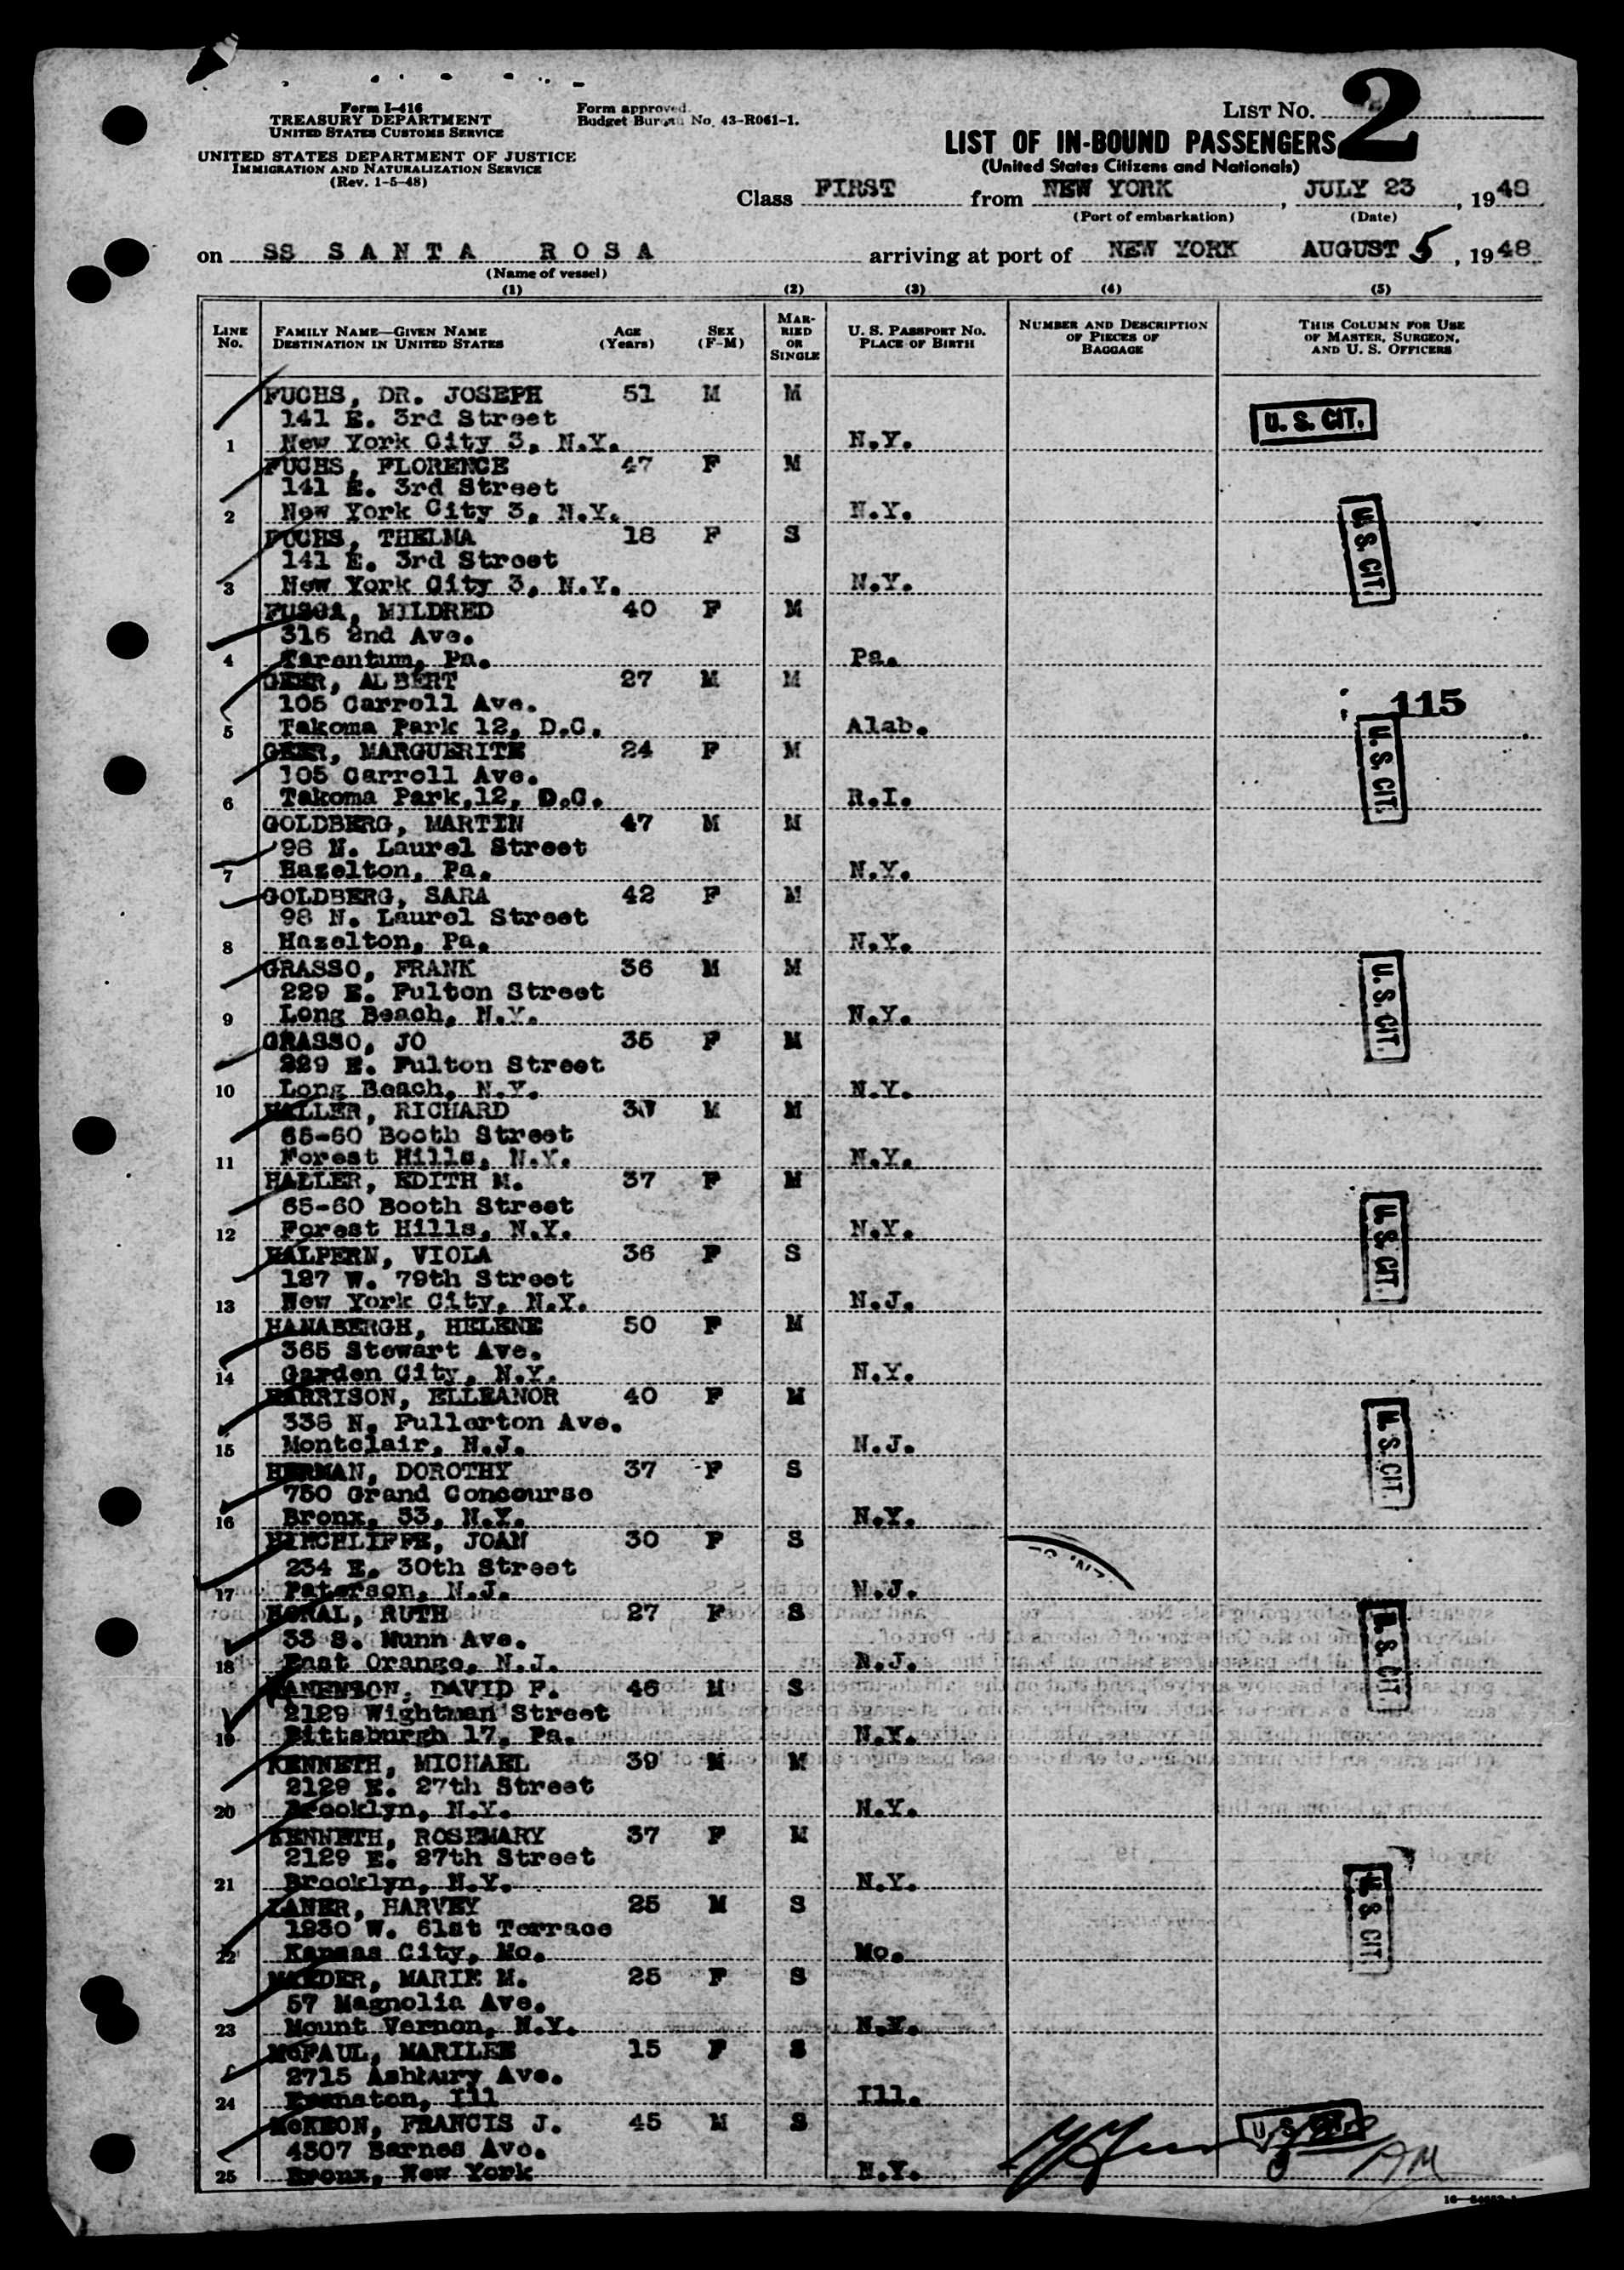 Form I-416
TREASURY DEPARTMENT
UNITED STATES CUSTOMS SERVICE
UNITED STATES DEPARTMENT OF JUSTICE
IMMIGRATION AND NATURALIZATION SERVICE
(Rev. 1-5-48)
Form approved.
Budget Bureau No. 43-R061-1.
LIST NO. 2
LIST OF IN-BOUND PASSENGERS
(United States Citizens and Nationals)
Class FIRST from NEW YORK, JULY 23, 1948
(Port of embarkation) (Date)
on SS SANTA ROSA arriving at port of NEW YORK AUGUST 5, 1948
(Name of vessel)
(1) (2) (3) (4) (5)
LINE NO. FAMILY NAME—GIVEN NAME DESTINATION IN UNITED STATES AGE (Years) SEX (F-M) MARRIED OR SINGLE U. S. PASSPORT NO. PLACE OF BIRTH NUMBER AND DESCRIPTION OF PIECES OF BAGGAGE THIS COLUMN FOR USE OF MASTER, SURGEON, AND U. S. OFFICERS
FUCHS, DR. JOSEPH 51 M M
141 E. 3rd Street U. S. CIT.
1 New York City 3, N.Y. N.Y.
FUCHS, FLORENCE 47 F M
141 E. 3rd Street
2 New York City 3, N.Y. N.Y.
FUCHS, THELMA 18 F S U. S. CIT.
141 E. 3rd Street
3 New York City 3, N.Y. N.Y.
FUSCA, MILDRED 40 F M
316 2nd Ave.
4 Tarentum, Pa. Pa.
GEER, ALBERT 27 M M
105 Carroll Ave. 115
5 Takoma Park 12, D.C. Alab.
GEER, MARGUERITE 24 F M U. S. CIT.
105 Carroll Ave.
6 Takoma Park,12, D.C. R.I.
GOLDBERG, MARTIN 47 M M
98 N. Laurel Street
7 Hazelton, Pa. N.Y.
GOLDBERG, SARA 42 F M
98 N. Laurel Street
8 Hazelton, Pa. N.Y.
GRASSO, FRANK 36 M M U. S. CIT.
229 E. Fulton Street
9 Long Beach, N.Y. N.Y.
GRASSO, JO 35 F M
229 E. Fulton Street
10 Long Beach, N.Y. N.Y.
HALLER, RICHARD M M
65-60 Booth Street
11 Forest Hills, N.Y. N.Y.
HALLER, EDITH M. 37 F M
65-60 Booth Street
12 Forest Hills, N.Y. N.Y.
HALPERN, VIOLA 36 F S U. S. CIT.
127 W. 79th Street
13 New York City, N.Y. N.J.
HANABERGH, HELENE 50 F M
365 Stewart Ave.
14 Garden City, N.Y. N.Y.
HARRISON, ELLEANOR 40 F M
338 N. Fullerton Ave. U. S. CIT.
15 Montclair, N.J. N.J.
HERMAN, DOROTHY 37 F S
750 Grand Concourse
16 Bronx, 53, N.Y. N.Y.
HINCHLIFFE, JOAN 30 F S
234 E. 30th Street
17 Paterson, N.J. N.J.
HORAL, RUTH 27 F S
33 S. Munn Ave. U. S. CIT.
18 East Orange, N.J. N.J.
KANENSON, DAVID F. 46 M S
2129 Wightman Street
19 Pittsburgh 17, Pa. N.Y.
KENNETH, MICHAEL 39 M M
2129 E. 27th Street
20 Brooklyn, N.Y. N.Y.
KENNETH, ROSEMARY 37 F M
2129 E. 27th Street
21 Brooklyn, N.Y. N.Y.
LANER, HARVEY 25 M S U. S. CIT.
1230 W. 61st Terrace
22 Kansas City, Mo. Mo.
MAEDER, MARIE M. 25 F S
57 Magnolia Ave.
23 Mount Vernon, N.Y. N.Y.
McFAUL, MARILEE 15 F S
2715 Ashbury Ave.
24 Evanston, Ill Ill.
McKEON, FRANCIS J. 45 M S
4307 Barnes Ave.
25 Bronx, New York N.Y.